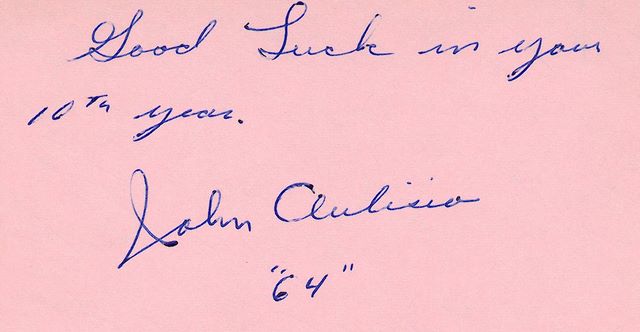 Good Luck in your
10th year.
John Aulisio
"64"